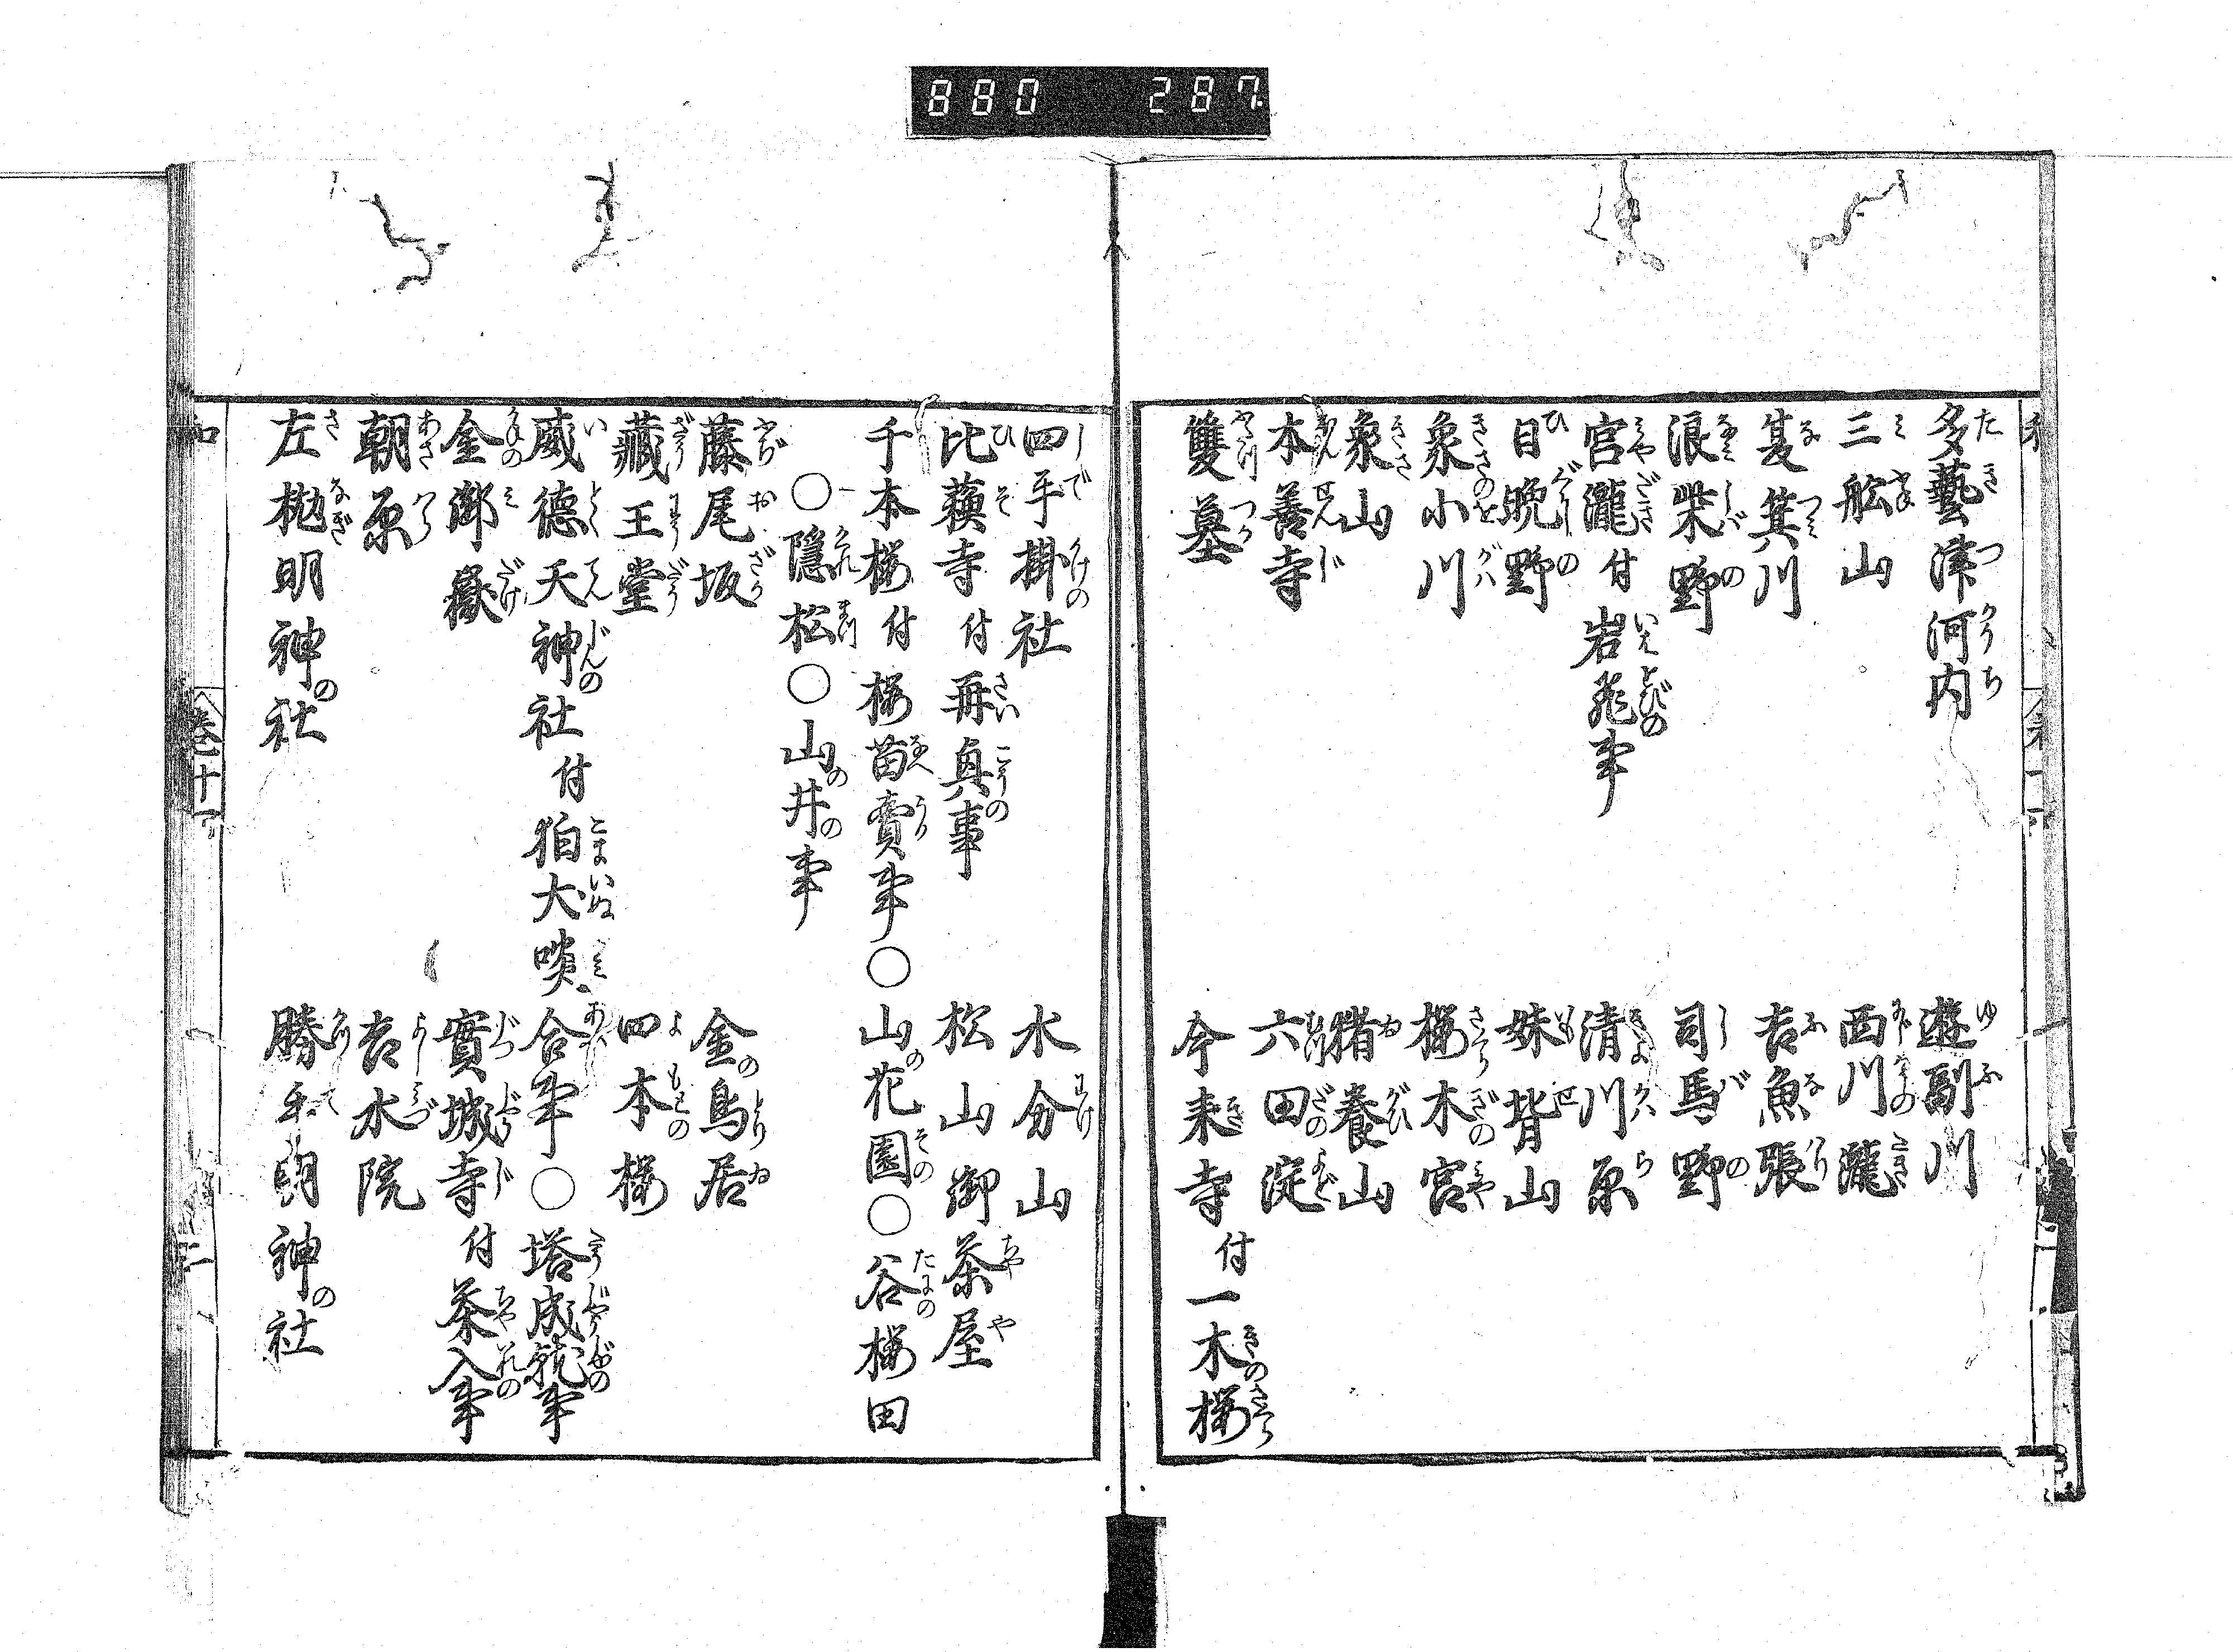 880 287
多藝津河内 遊副川
三舩山 西川瀧
夏箕川 吉魚張
浪柴野 司馬野
宮瀧 付 岩飛事 清川原
日晩野 妹背山
象小川 櫻木宮
象山 猪養山
本善寺 六田淀
雙墓 今来寺 付 一木櫻
四手掛社 水分山
比蘓寺 付 再興事 松山御茶屋
千本櫻 付 櫻苗賣事○山花園○谷櫻田
○隠松○山井事
藤尾坂 金鳥居
藏王堂 四本櫻
威德天神社 付 狛犬噛合事○塔成就事
金御嶽 實城寺 付 茶入事
朝原 吉水院
左抛明神社 勝手明神社
卷十一